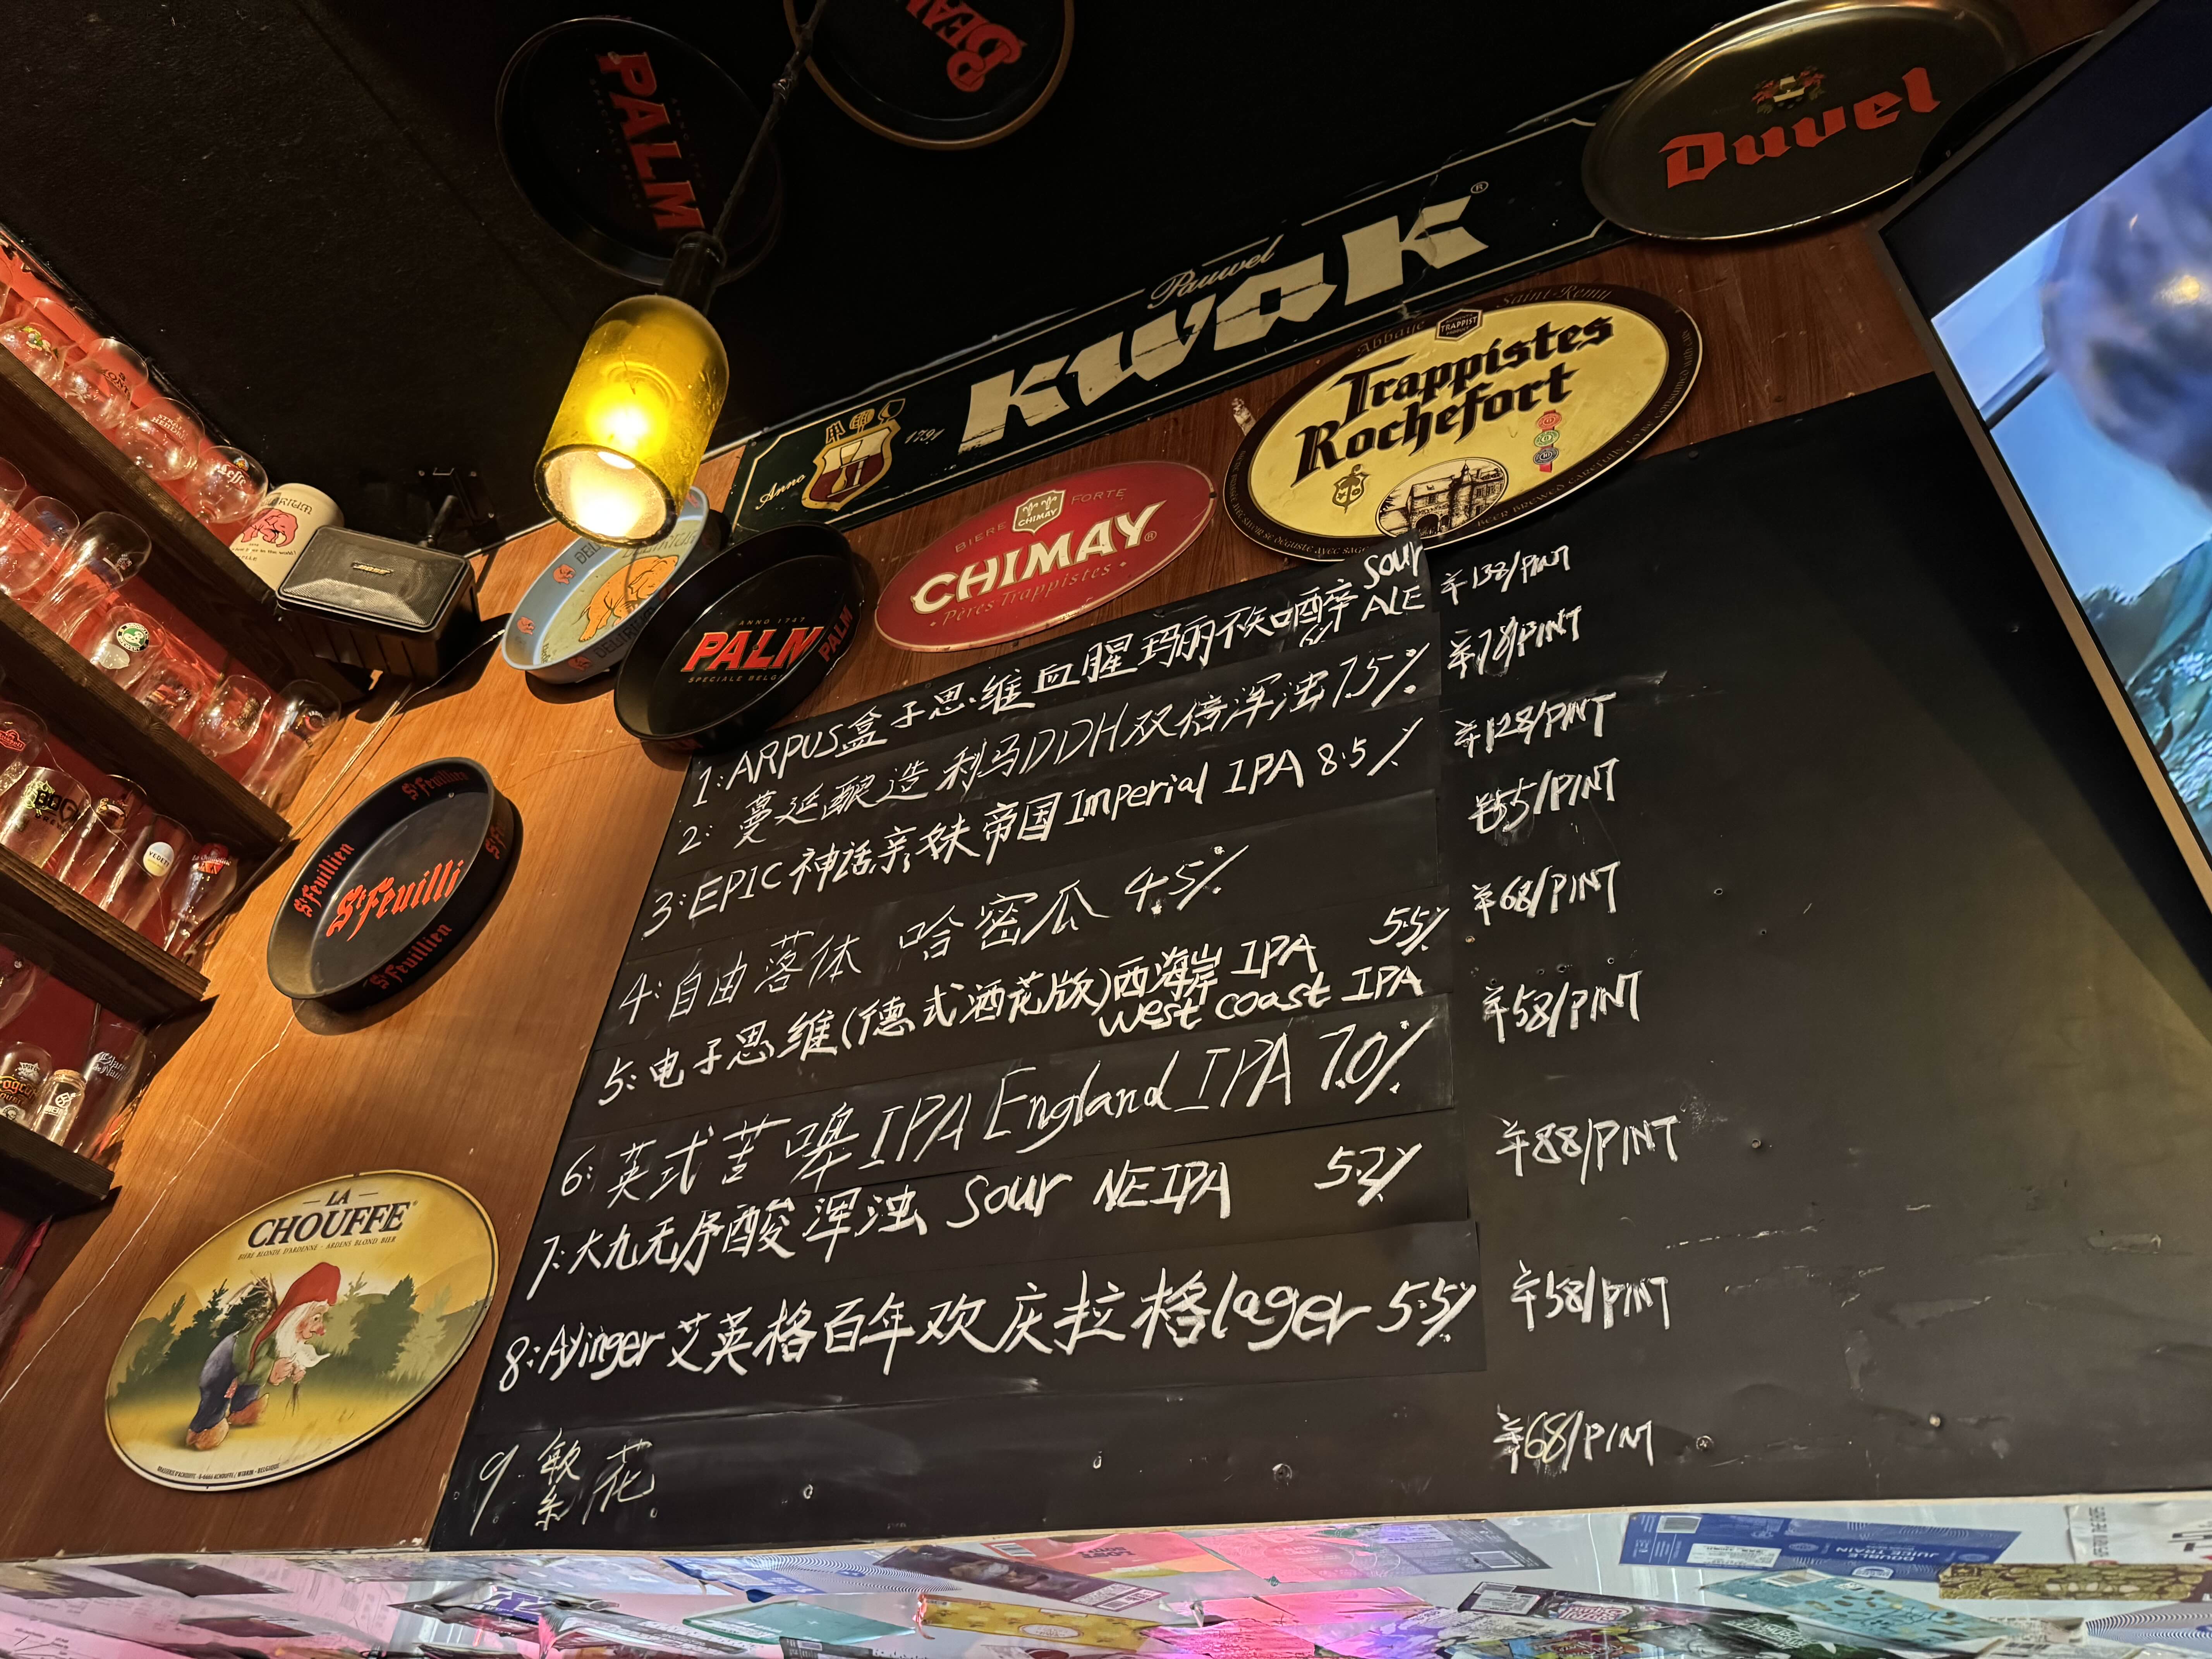 PALM
Duvel
Pauwel
KWAK®
Anno
1791
Abbaye Saint-Remy
TRAPPIST
Trappistes
Rochefort
BIERE FORTE
CHIMAY
CHIMAY®
Pères Trappistes
ANNO 1747
PALM
SPECIALE BELG
PALM
BOSE
Leffe
VEDETT
St Feuillien
St Feuillien
St Feuilli
St Feuillien
LA
CHOUFFE®
BIÈRE BLONDE D'ARDENNE - ARDENS BLOND BIER
1:ARPUS盒子思维血腥玛丽 Sour ALE ¥138/PINT
2: 蔓延酿造利马DDH双倍浑浊7.5% ¥78/PINT
3:EPIC神话帝国Imperial IPA 8.5% ¥128/PINT
4:自由落体 哈密瓜 4.5% ¥55/PINT
5:电子思维(德式酒花版)西海岸 IPA 5.5% ¥68/PINT
west coast IPA
6:英式苦啤IPA England IPA 7.0% ¥58/PINT
7:大九无序酸浑浊 Sour NEIPA 5.2% ¥88/PINT
8:Ayinger艾英格百年欢庆拉格lager 5.5% ¥58/PINT
9 繁花 ¥68/PINT